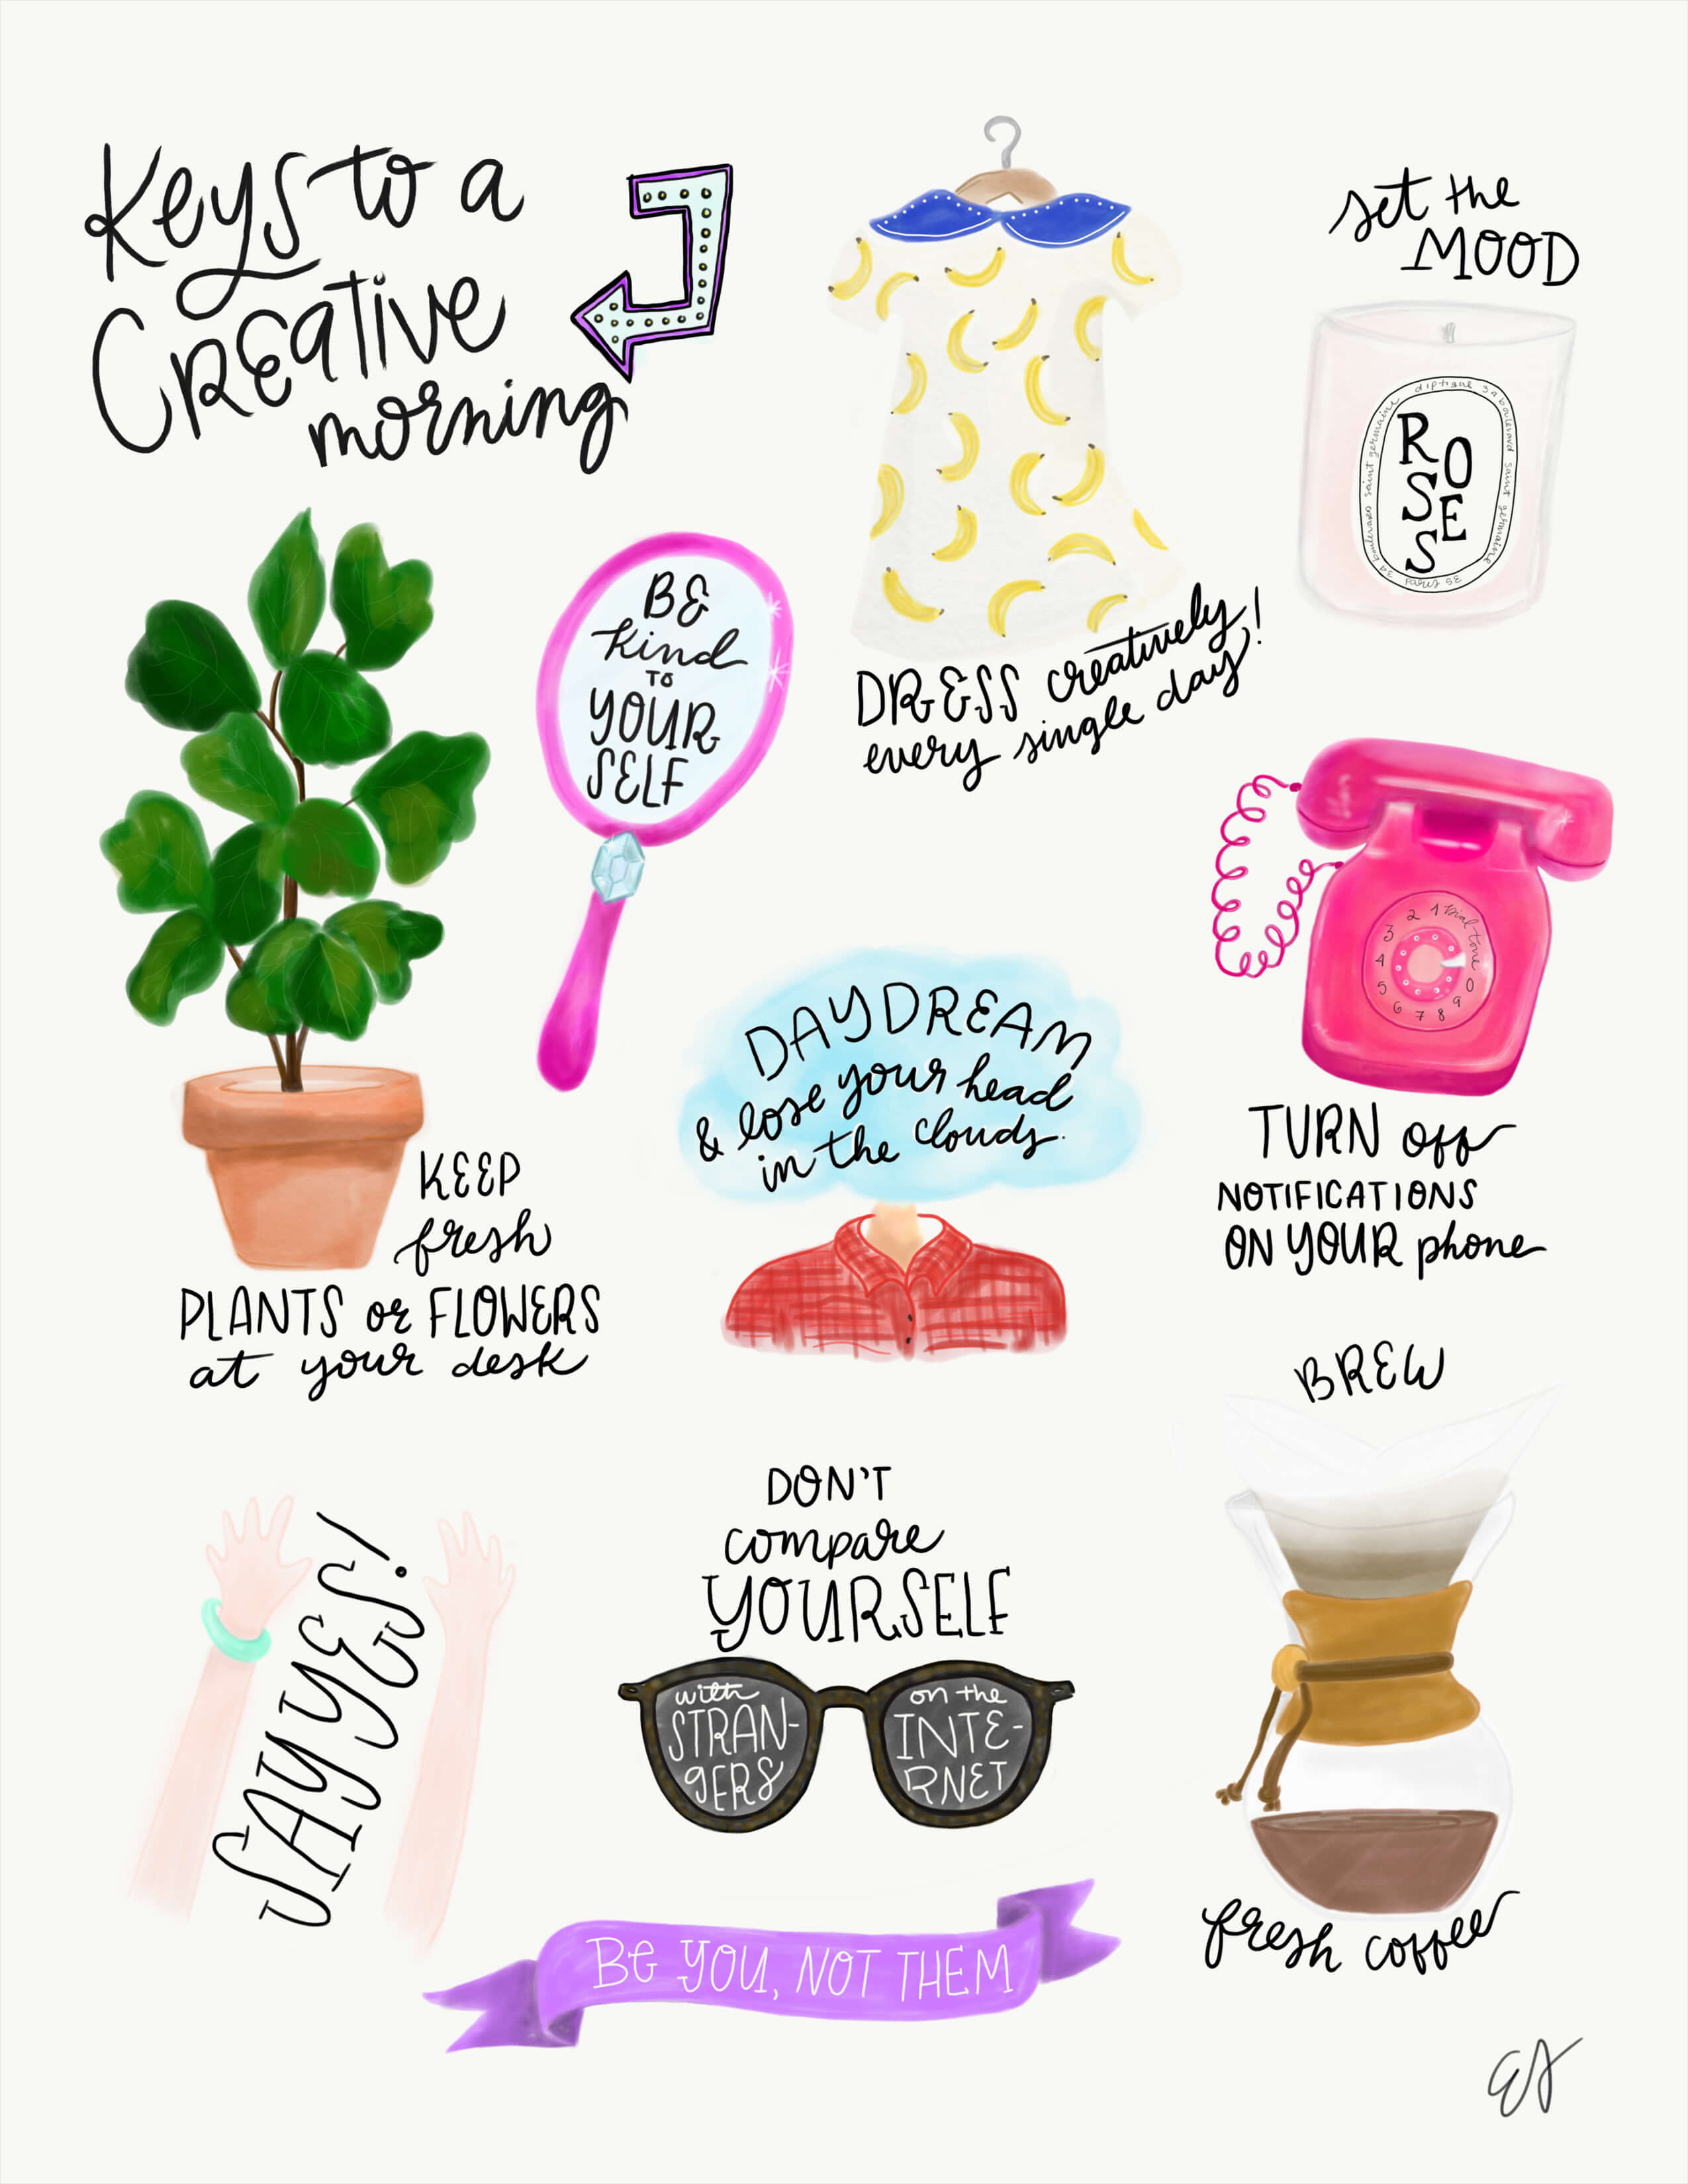 Keys to a
Creative
morning
set the
MOOD
diptique 34 boulevard saint germaine
paris 5e
34 boulevard saint germaine
RO
SE
S
DRESS creatively
every single day!
BE
kind
TO
YOUR
SELF
KEEP
fresh
PLANTS or FLOWERS
at your desk
DAYDREAM
& lose your head
in the clouds.
1 2 3 4 5 6 7 8 9 0
Dial tone
TURN off
NOTIFICATIONS
ON YOUR phone
SAY YES!
DON'T
compare
YOURSELF
with
STRAN-
GERS
on the
INTE-
RNET
BREW
fresh coffee
Be YOU, NOT THEM